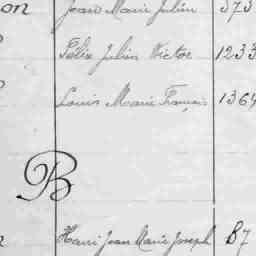 on Jean Marie Julien 373
Félix Julien Victor 1233
Louis Marie François 1364
B
Henri Jean Marie Joseph 87